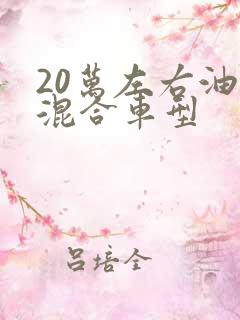 20萬左右油
混合車型
呂培全